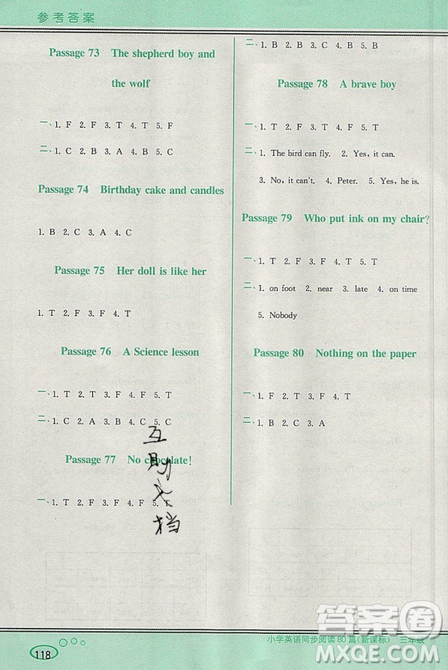 参考答案
Passage 73 The shepherd boy and
the wolf
一、1. F 2. F 3. T 4. T 5. F
二、1. C 2. B 3. A 4. C 5. B
Passage 74 Birthday cake and candles
1. B 2. C 3. A 4. C
Passage 75 Her doll is like her
1. T 2. F 3. F 4. T
Passage 76 A Science lesson
一、1. T 2. T 3. F 4. F 5. T
二、1. C 2. A 3. B 4. B 5. C
Passage 77 No chocolate!
一、1. T 2. F 3. F 4. F 5. T
二、1. B 2. C 3. B 4. B 5. B
Passage 78 A brave boy
一、1. F 2. F 3. T 4. T
二、1. The bird can fly. 2. Yes, it can.
3. No, it can't. 4. Peter. 5. Yes, he is.
Passage 79 Who put ink on my chair?
一、1. T 2. F 3. F 4. T 5. T
二、1. on foot 2. near 3. late 4. on time
5. Nobody
Passage 80 Nothing on the paper
一、1. T 2. T 3. F 4. F 5. T
二、1. B 2. C 3. A
互助文档
118
小学英语同步阅读80篇(新课标) 三年级
答案圈
MXQE.COM